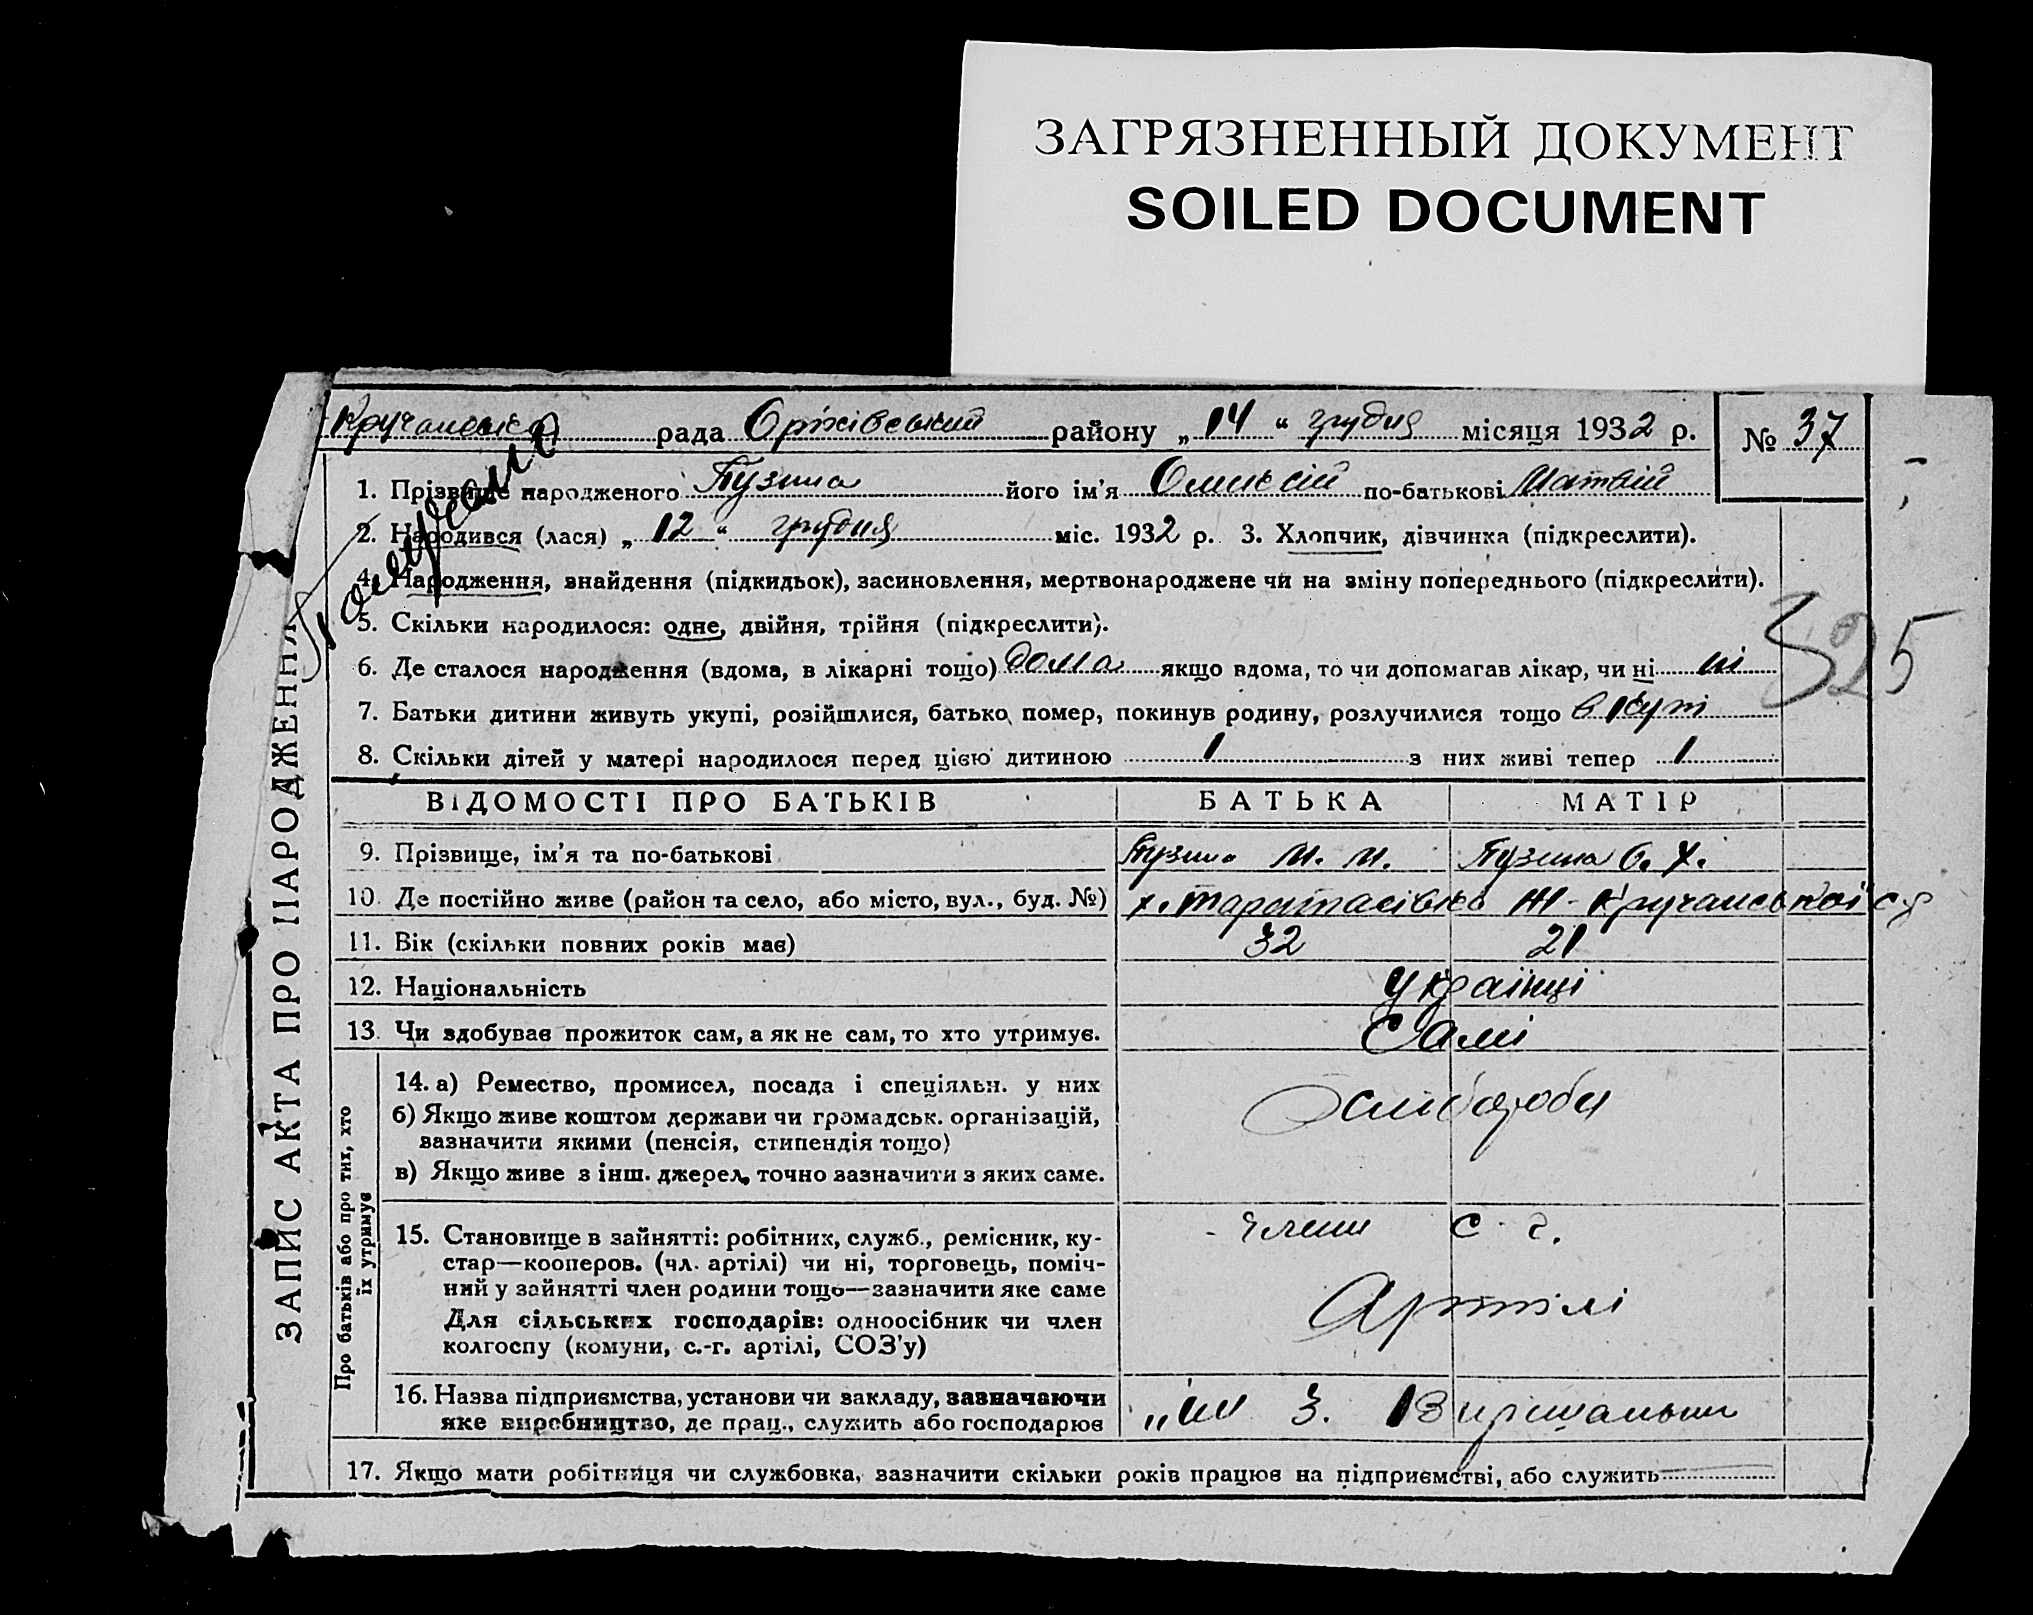 ЗАГРЯЗНЕННЫЙ ДОКУМЕНТ
SOILED DOCUMENT
Кручанська рада Оржівський району „ 14 “ грудня місяця 1932 р. № 37
1. Прізвище народженого Пузина його ім'я Олексій по-батькові Матвій
2. Народився (лася) „ 12 “ грудня міс. 1932 р. 3. Хлопчик, дівчинка (підкреслити).
4. Народження, знайдення (підкидьок), засиновлення, мертвонароджене чи на зміну попереднього (підкреслити).
5. Скільки народилося: одне, двійня, трійня (підкреслити).
325
6. Де сталося народження (вдома, в лікарні тощо) дома якщо вдома, то чи допомагав лікар, чи ні ні
7. Батьки дитини живуть укупі, розійшлися, батько помер, покинув родину, розлучилися тощо в купі
8. Скільки дітей у матері народилося перед цією дитиною 1 з них живі тепер 1
ВІДОМОСТІ ПРО БАТЬКІВ БАТЬКА МАТІР
9. Прізвище, ім'я та по-батькові Пузина М. М. Пузина О. Х.
10. Де постійно живе (район та село, або місто, вул., буд. №) х. Таратасівка Ж-Кручанської с р
11. Вік (скільки повних років має) 32 21
12. Національність Українці
13. Чи здобуває прожиток сам, а як не сам, то хто утримує. Самі
14. а) Ремество, промисел, посада і спеціяльн. у них
б) Якщо живе коштом держави чи громадськ. організацій,
зазначити якими (пенсія, стипендія тощо)
в) Якщо живе з інш. джерел, точно зазначити з яких саме.
Хлібороби
15. Становище в зайнятті: робітник, служб., ремісник, ку-
стар—кооперов. (чл. артілі) чи ні, торговець, поміч-
ний у зайнятті член родини тощо—зазначити яке саме
Для сільських господарів: одноосібник чи член
колгоспу (комуни, с.-г. артілі, СОЗ'у)
члени с. г.
Артілі
16. Назва підприємства, установи чи закладу, зазначаючи
яке виробництво, де прац., служить або господарює
17. Якщо мати робітниця чи службовка, зазначити скільки років працює на підприємстві, або служить
ЗАПИС АКТА ПРО НАРОДЖЕННЯ
Про батьків або про тих, хто
їх утримує